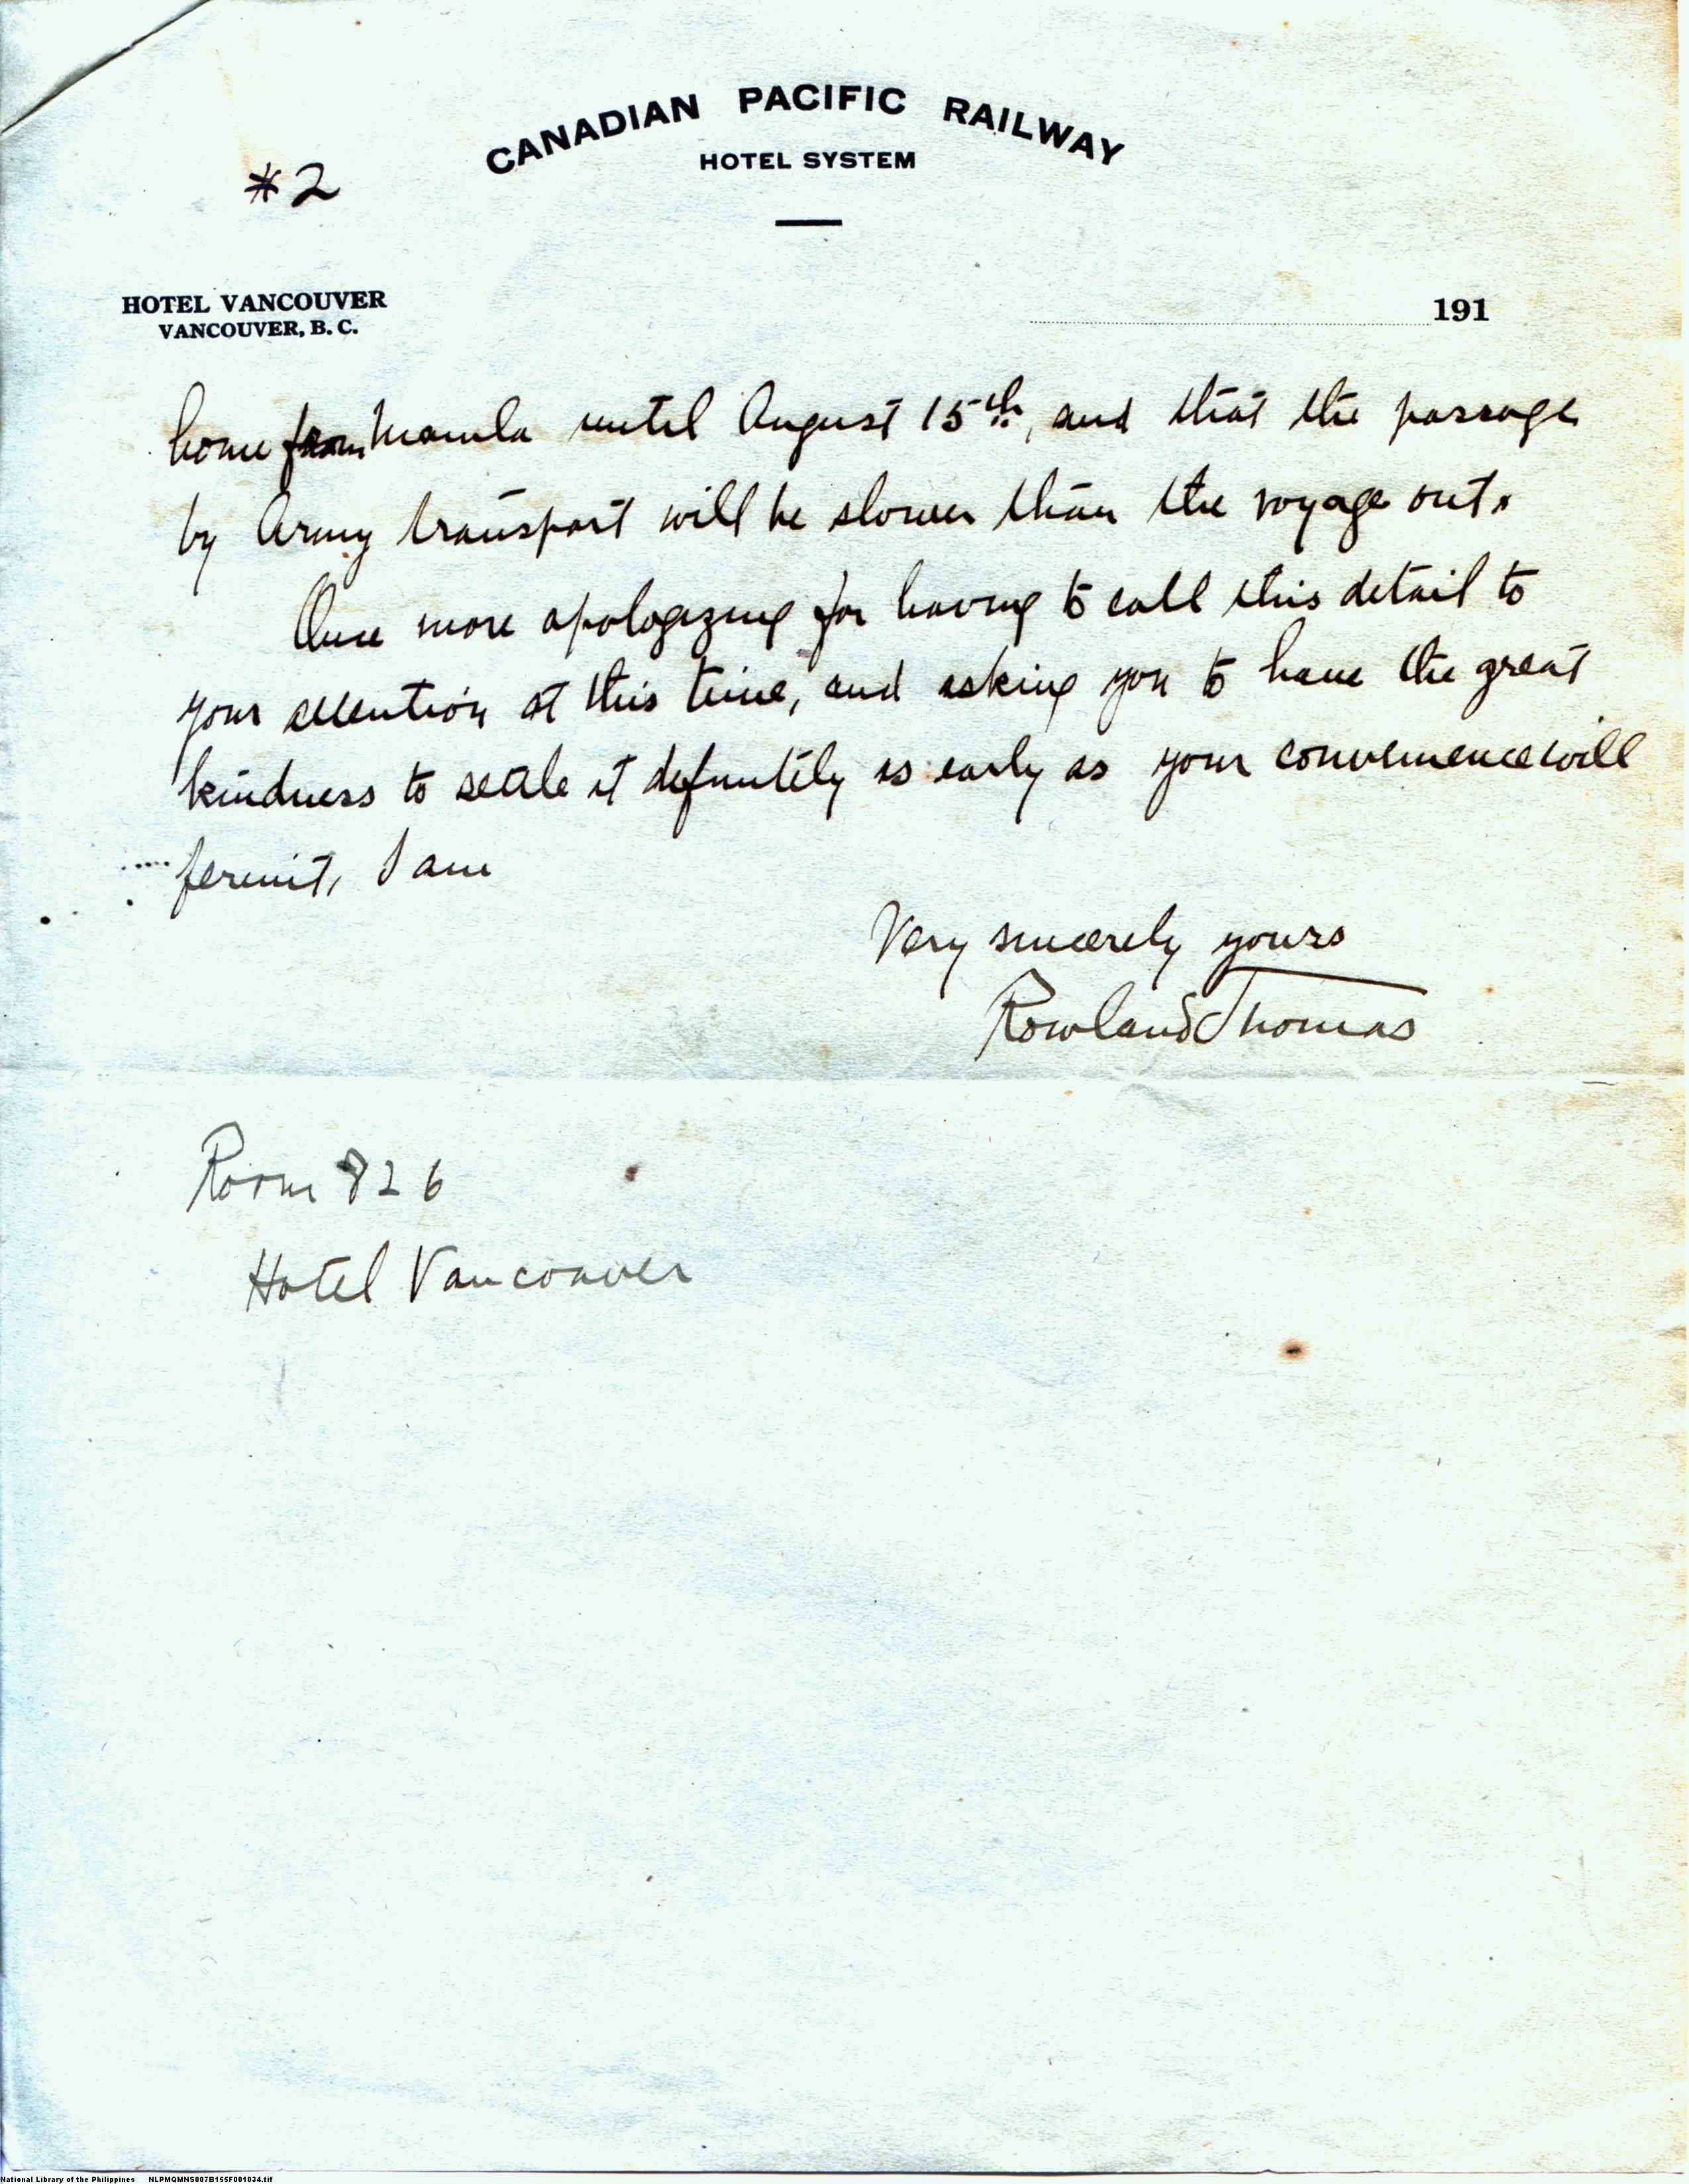 CANADIAN PACIFIC RAILWAY
HOTEL SYSTEM
#2
HOTEL VANCOUVER
VANCOUVER, B. C.
191
home from Manila until August 15th, and that the passage
by Army transport will be slower than the voyage out.
Once more apologizing for having to call this detail to
your attention at this time, and asking you to have the great
kindness to settle it definitely as early as your convenience will
permit, I am
Very sincerely yours
Rowland Thomas
Room 826
Hotel Vancouver
National Library of the Philippines NLPMQMNS007B155F001034.tif